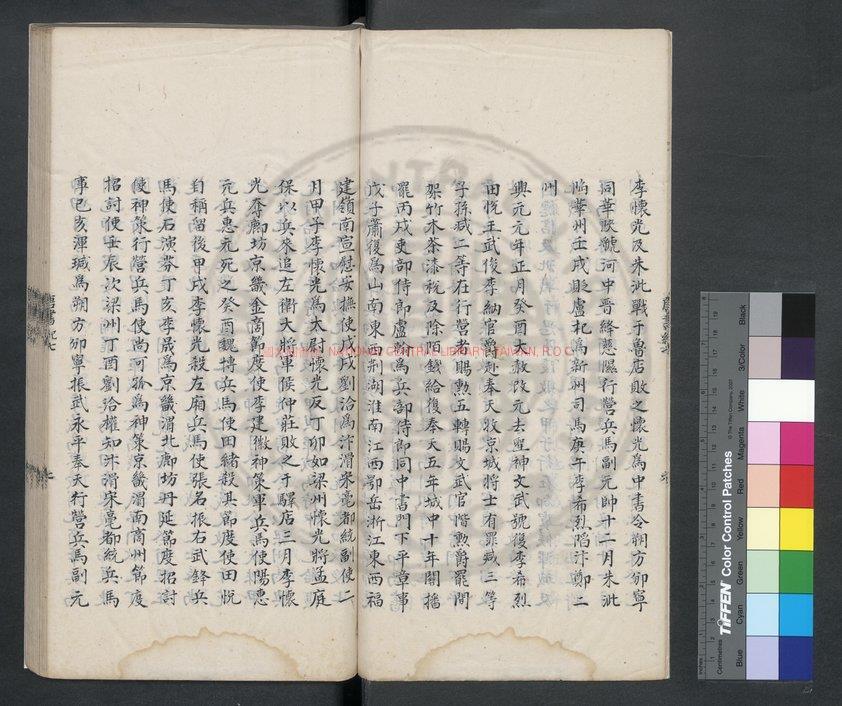 李懷光及朱泚戰于魯店敗之懷光爲中書令朔方邠寧
同華陝虢河中晋絳慈隰行營兵馬副元帥十二月朱泚
陷華州壬戌貶盧杞爲新州司馬庚午李希烈陷汴鄭二
州
興元元年正月癸酉大赦改元去聖神文武號復李希烈
田悅王武俊李納官爵赴奉天收京城將士有罪减三等
子孫减二等在行營者賜勲五轉賜文武官階勲爵罷間
架竹木茶漆稅及除陌錢給復奉天五年城中十年關播
罷丙戌吏部侍郎盧翰爲兵部侍郎同中書門下平章事
戊子蕭復爲山南東西荆湖淮南江西鄂岳浙江東西福
建嶺南宣慰安撫使戊戌劉洽爲汴滑宋亳都統副使二
月甲子李懷光爲太尉懷光反丁卯如梁州懷光將孟庭
保以兵來追左衛大將軍侯仲莊敗之于驛店三月李懷
光奪鄜坊京畿金商節度使李建徽神策軍兵馬使陽惠
元兵惠元死之癸酉魏博兵馬使田緒殺其節度使田悅
自稱留後甲戌李懷光殺左廂兵馬使張名振右武鋒兵
馬使石演芬丁亥李晟爲京畿渭北鄜坊丹延節度招討
使神策行營兵馬使尚可孤爲神策京畿渭南商州節度
招討使壬辰次梁州丁酉劉洽權知汴滑宋亳都統兵馬
事己亥渾瑊爲朔方邠寧振武永平奉天行營兵馬副元
國家圖書館 NATIONAL CENTRAL LIBRARY, TAIWAN, R.O.C
TIFFEN Color Control Patches
© The Tiffen Company, 2007
Centimetres
Blue
Cyan
Green
Yellow
Red
Magenta
White
3/Color
Black